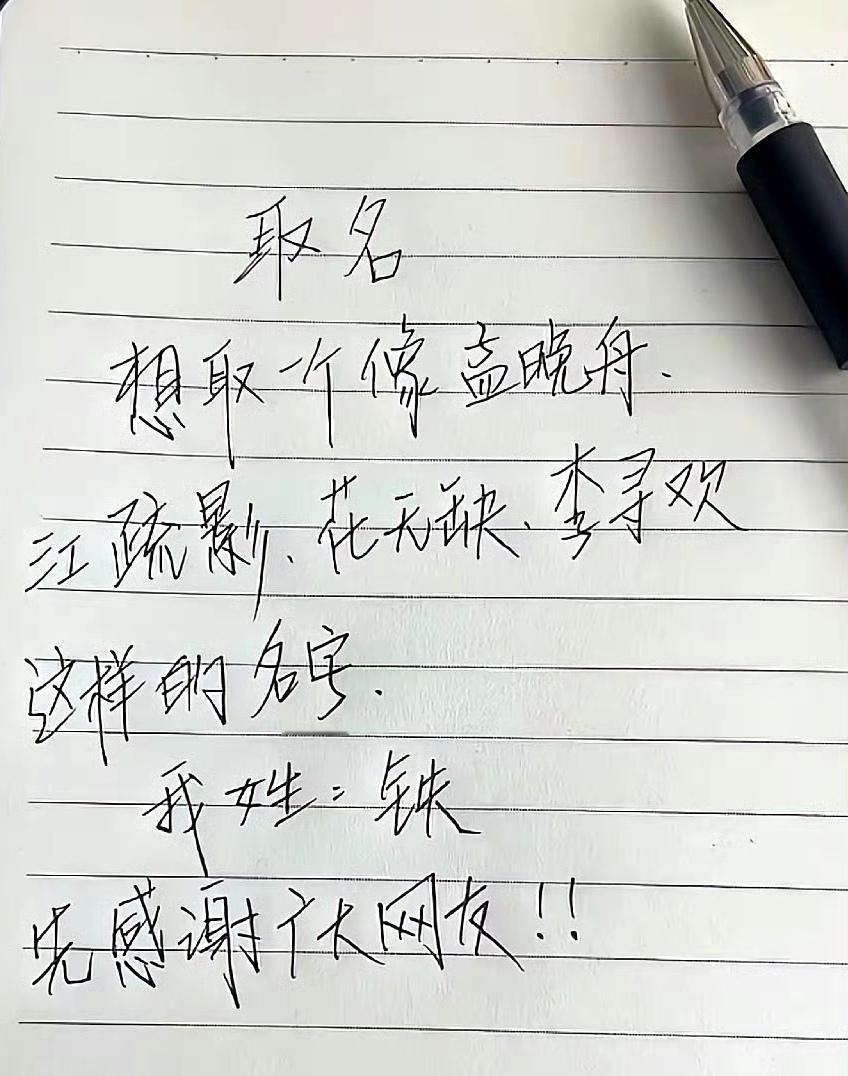 取名
想取一个像孟晚舟.
江疏影、花无缺、李寻欢
这样的名字.
我姓：铁
先感谢广大网友!!